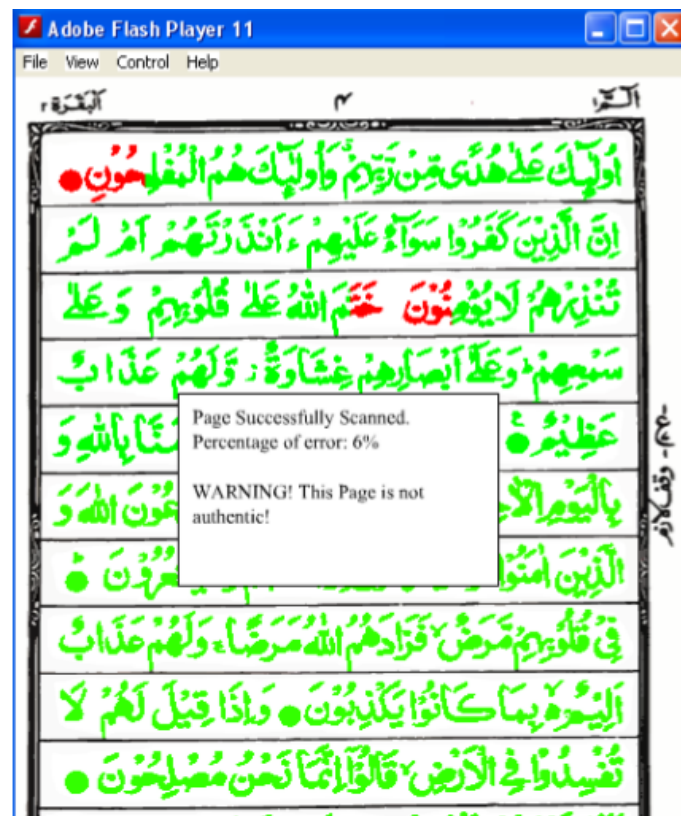 Adobe Flash Player 11
File View Control Help
الٓمّٓ ١ ٤ اَلْبَقَرَة ٢
اُولٰٓئِكَ عَلٰى هُدًى مِّنْ رَّبِّهِمْ ۙ وَاُولٰٓئِكَ هُمُ الْمُفْلِحُوْنَ ●
اِنَّ الَّذِيْنَ كَفَرُوْا سَوَآءٌ عَلَيْهِمْ ءَاَنْذَرْتَهُمْ اَمْ لَمْ
تُنْذِرْهُمْ لَا يُؤْمِنُوْنَ خَتَمَ اللّٰهُ عَلٰى قُلُوْبِهِمْ وَ عَلٰى
سَمْعِهِمْ ؕ وَعَلٰٓى اَبْصَارِهِمْ غِشَاوَةٌ ز وَّلَهُمْ عَذَابٌ
عَظِيْمٌ ● بِاللّٰهِ وَ
بِالْيَوْمِ اللّٰهَ وَ
الَّذِيْنَ اٰمَنُوْا ●
فِيْ قُلُوْبِهِمْ مَّرَضٌ ۙ فَزَادَهُمُ اللّٰهُ مَرَضًا ۚ وَلَهُمْ عَذَابٌ
اَلِيْمٌۢ ۙ بِمَا كَانُوْا يَكْذِبُوْنَ ● وَاِذَا قِيْلَ لَهُمْ لَا
تُفْسِدُوْا فِي الْاَرْضِ ۙ قَالُوْٓا اِنَّمَا نَحْنُ مُصْلِحُوْنَ ●
Page Successfully Scanned.
Percentage of error: 6%
WARNING! This Page is not
authentic!
وقف لازم